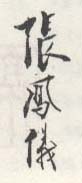 張鳳儀